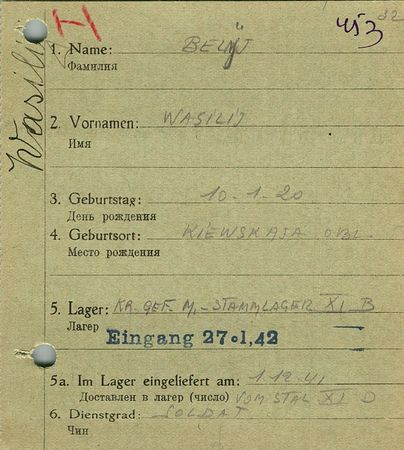 H
453
32
Wasilij
1. Name: BELYJ
Фамилия
2. Vornamen: WASILIJ
Имя
3. Geburtstag: 10-1-20
День рождения
4. Geburtsort: KIEWSKAJA OBL.
Место рождения
5. Lager: KR. GEF. M.-STAMMLAGER XI B
Лагер
Eingang 27.1.42
5a. Im Lager eingeliefert am: 1.12.41
Доставлен в лагер (число) VOM STAL XI D
6. Dienstgrad: SOLDAT
Чин